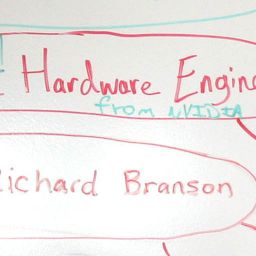 Hardware Engine
from NVIDIA
Richard Branson